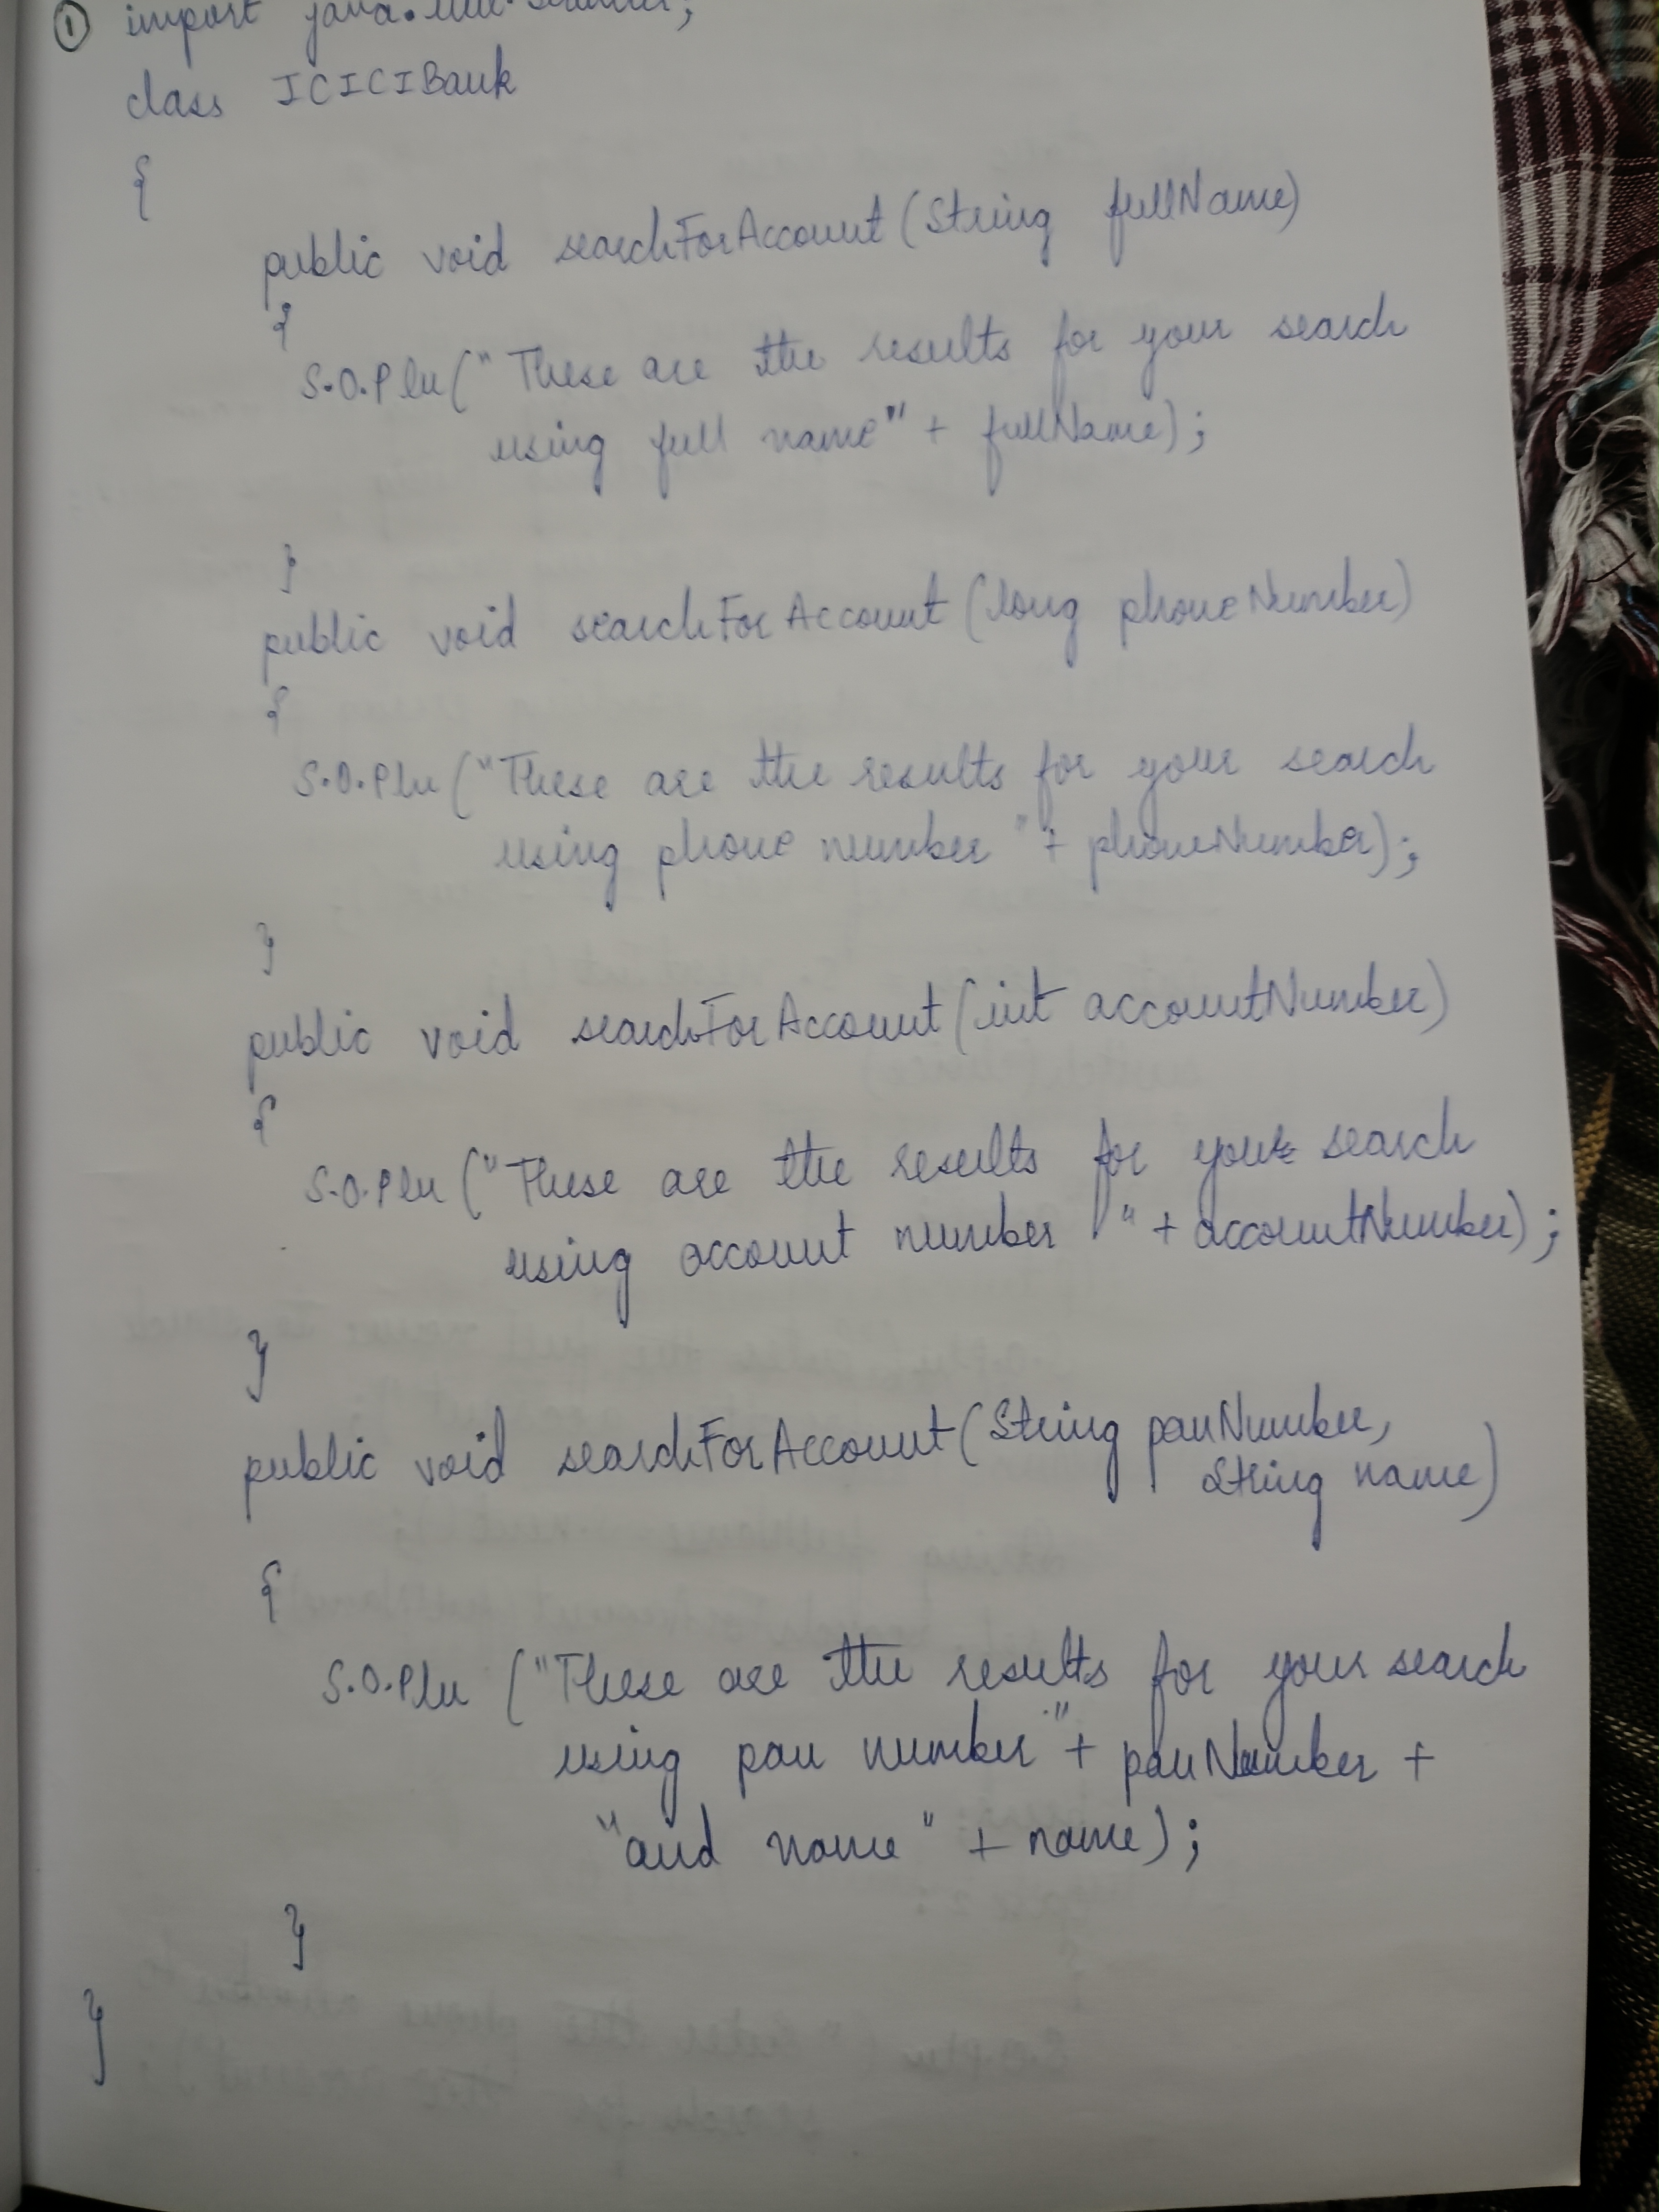 ① import java.util.Scanner;
class ICICIBank
{
public void searchForAccount(String fullName)
{
S.O.Pln("These are the results for your search
using full name" + fullName);
}
public void searchForAccount(long phoneNumber)
{
S.O.Pln("These are the results for your search
using phone number " + phoneNumber);
}
public void searchForAccount(int accountNumber)
{
S.O.Pln("These are the results for your search
using account number " + accountNumber);
}
public void searchForAccount(String panNumber,
String name)
{
S.O.Pln ("These are the results for your search
using pan number" + panNumber +
"and name" + name);
}
}